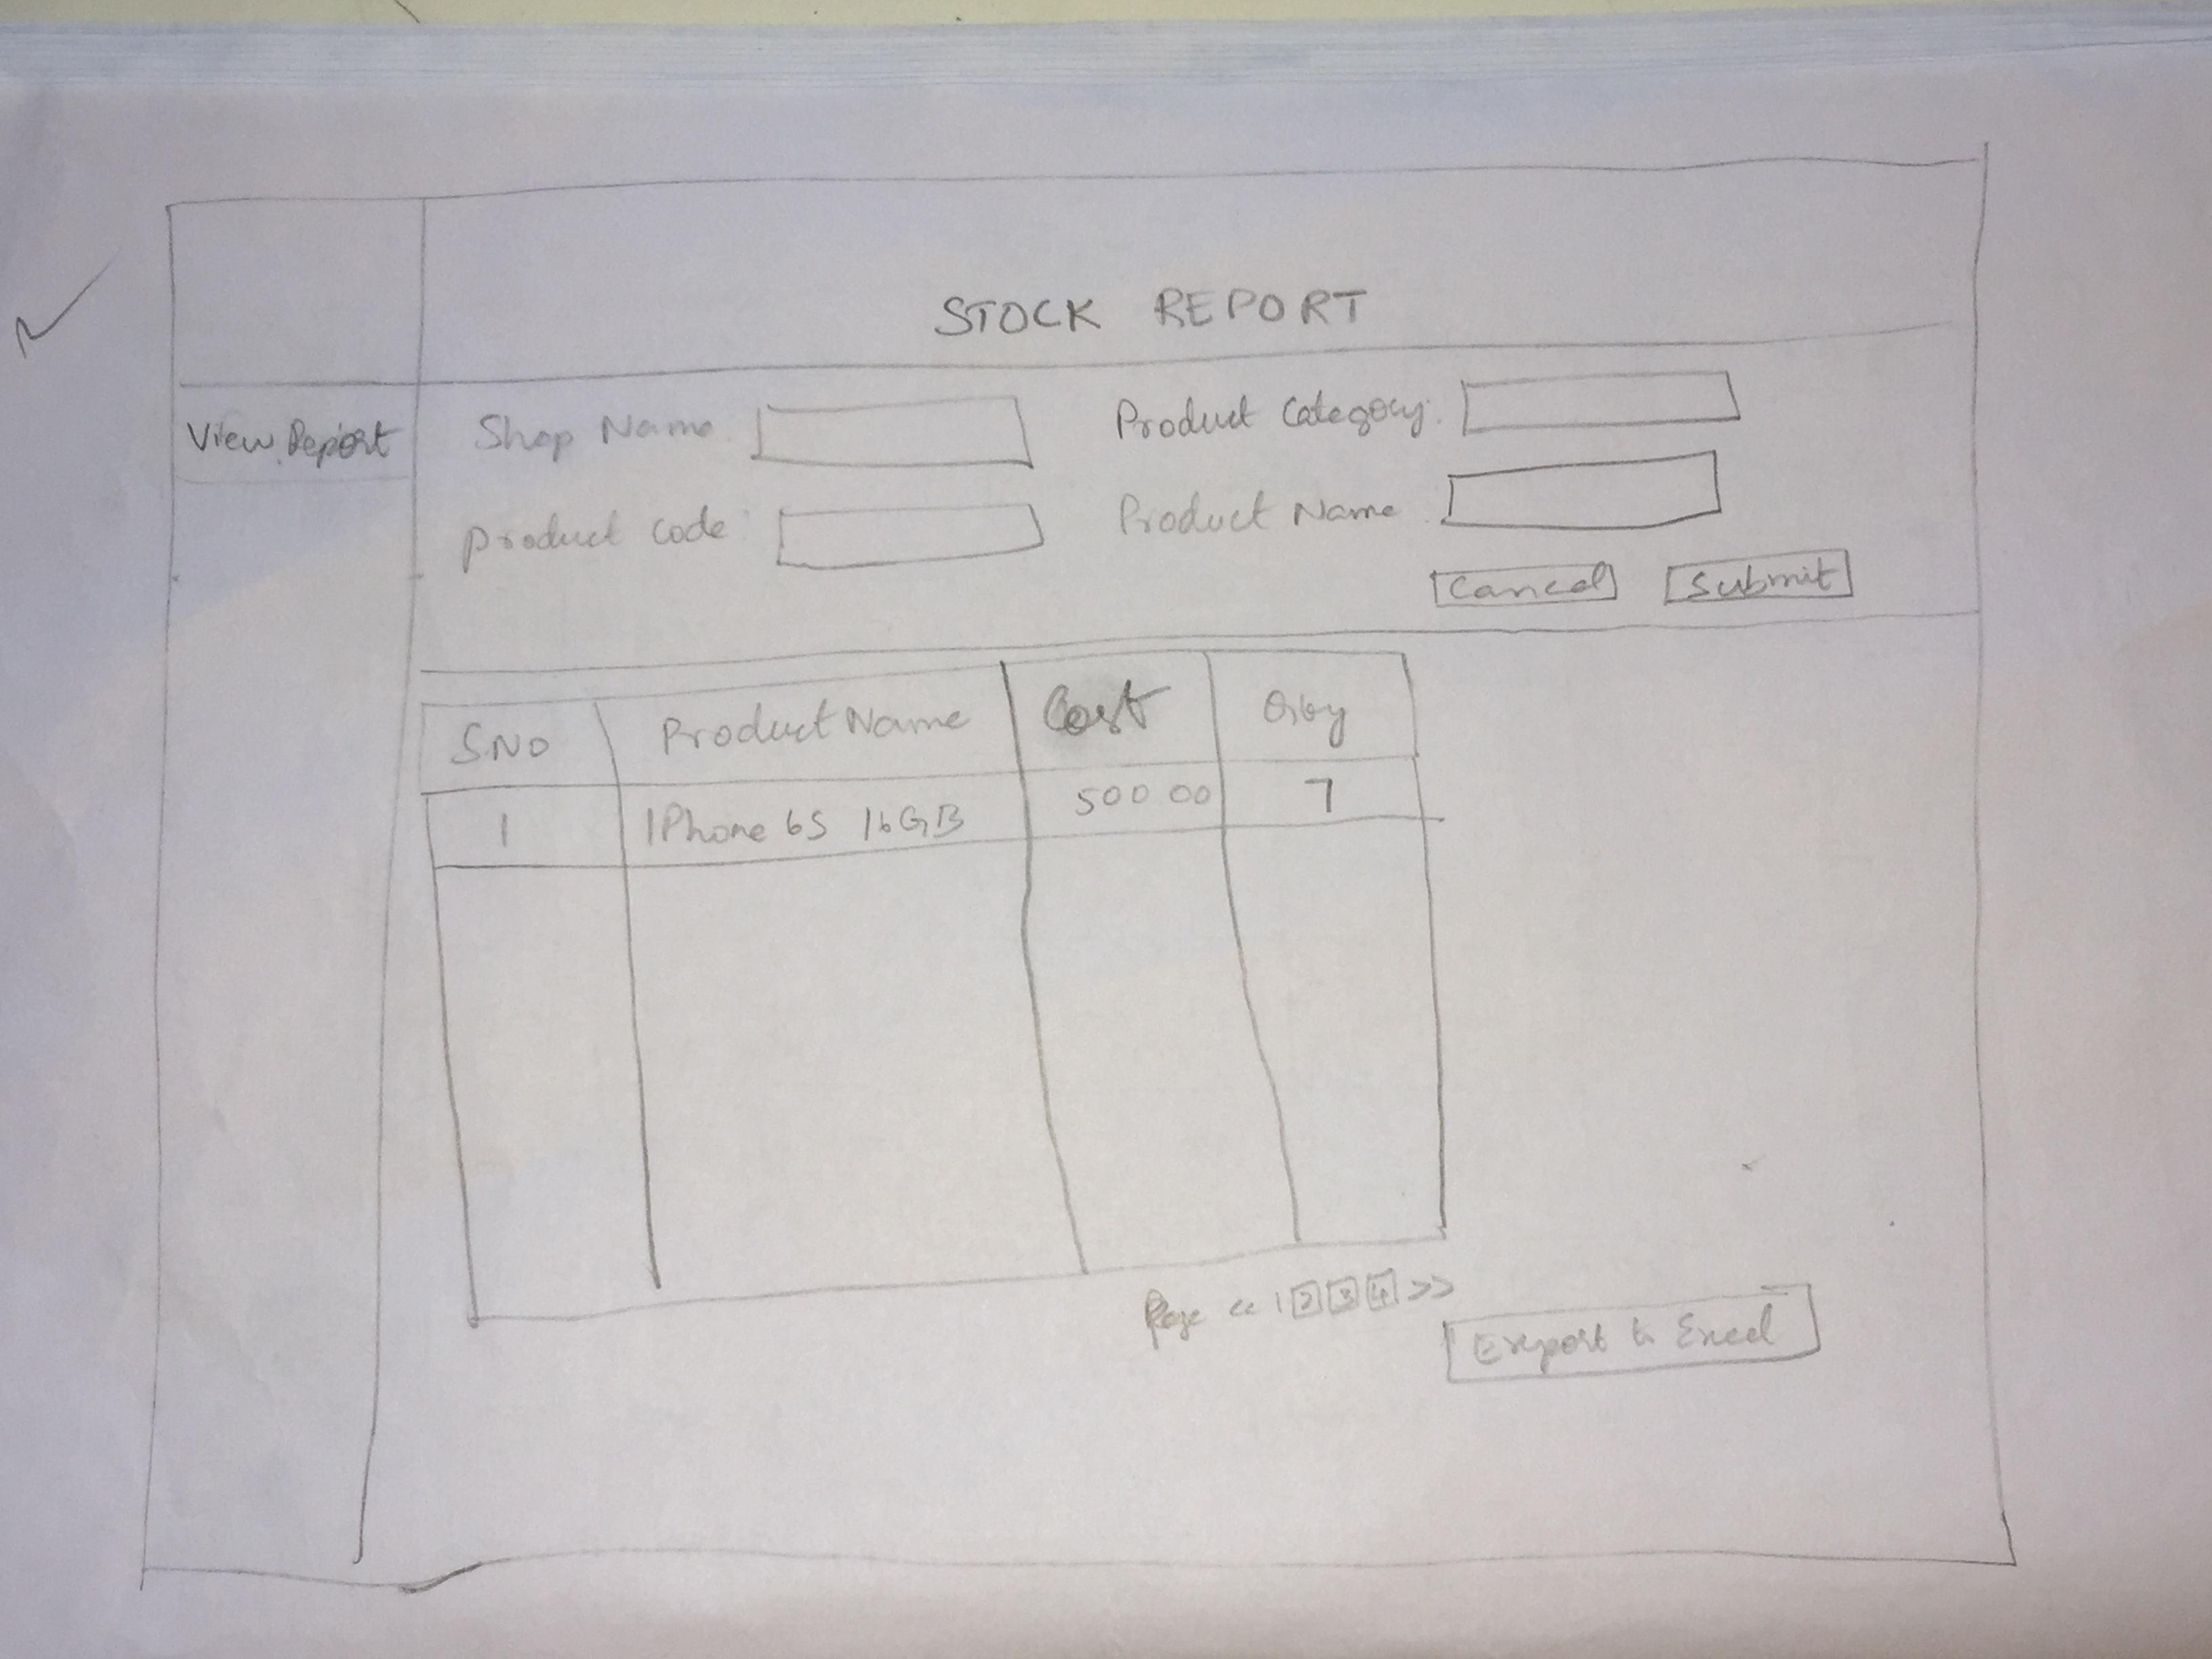 STOCK REPORT
View Report
Shop Name: Product Category:
Product Code: Product Name
Cancel Submit
S.NO Product Name Cost Qty
1 IPhone 6S 16GB 500 00 7
Page << 1 2 3 4 >>
Export to Excel